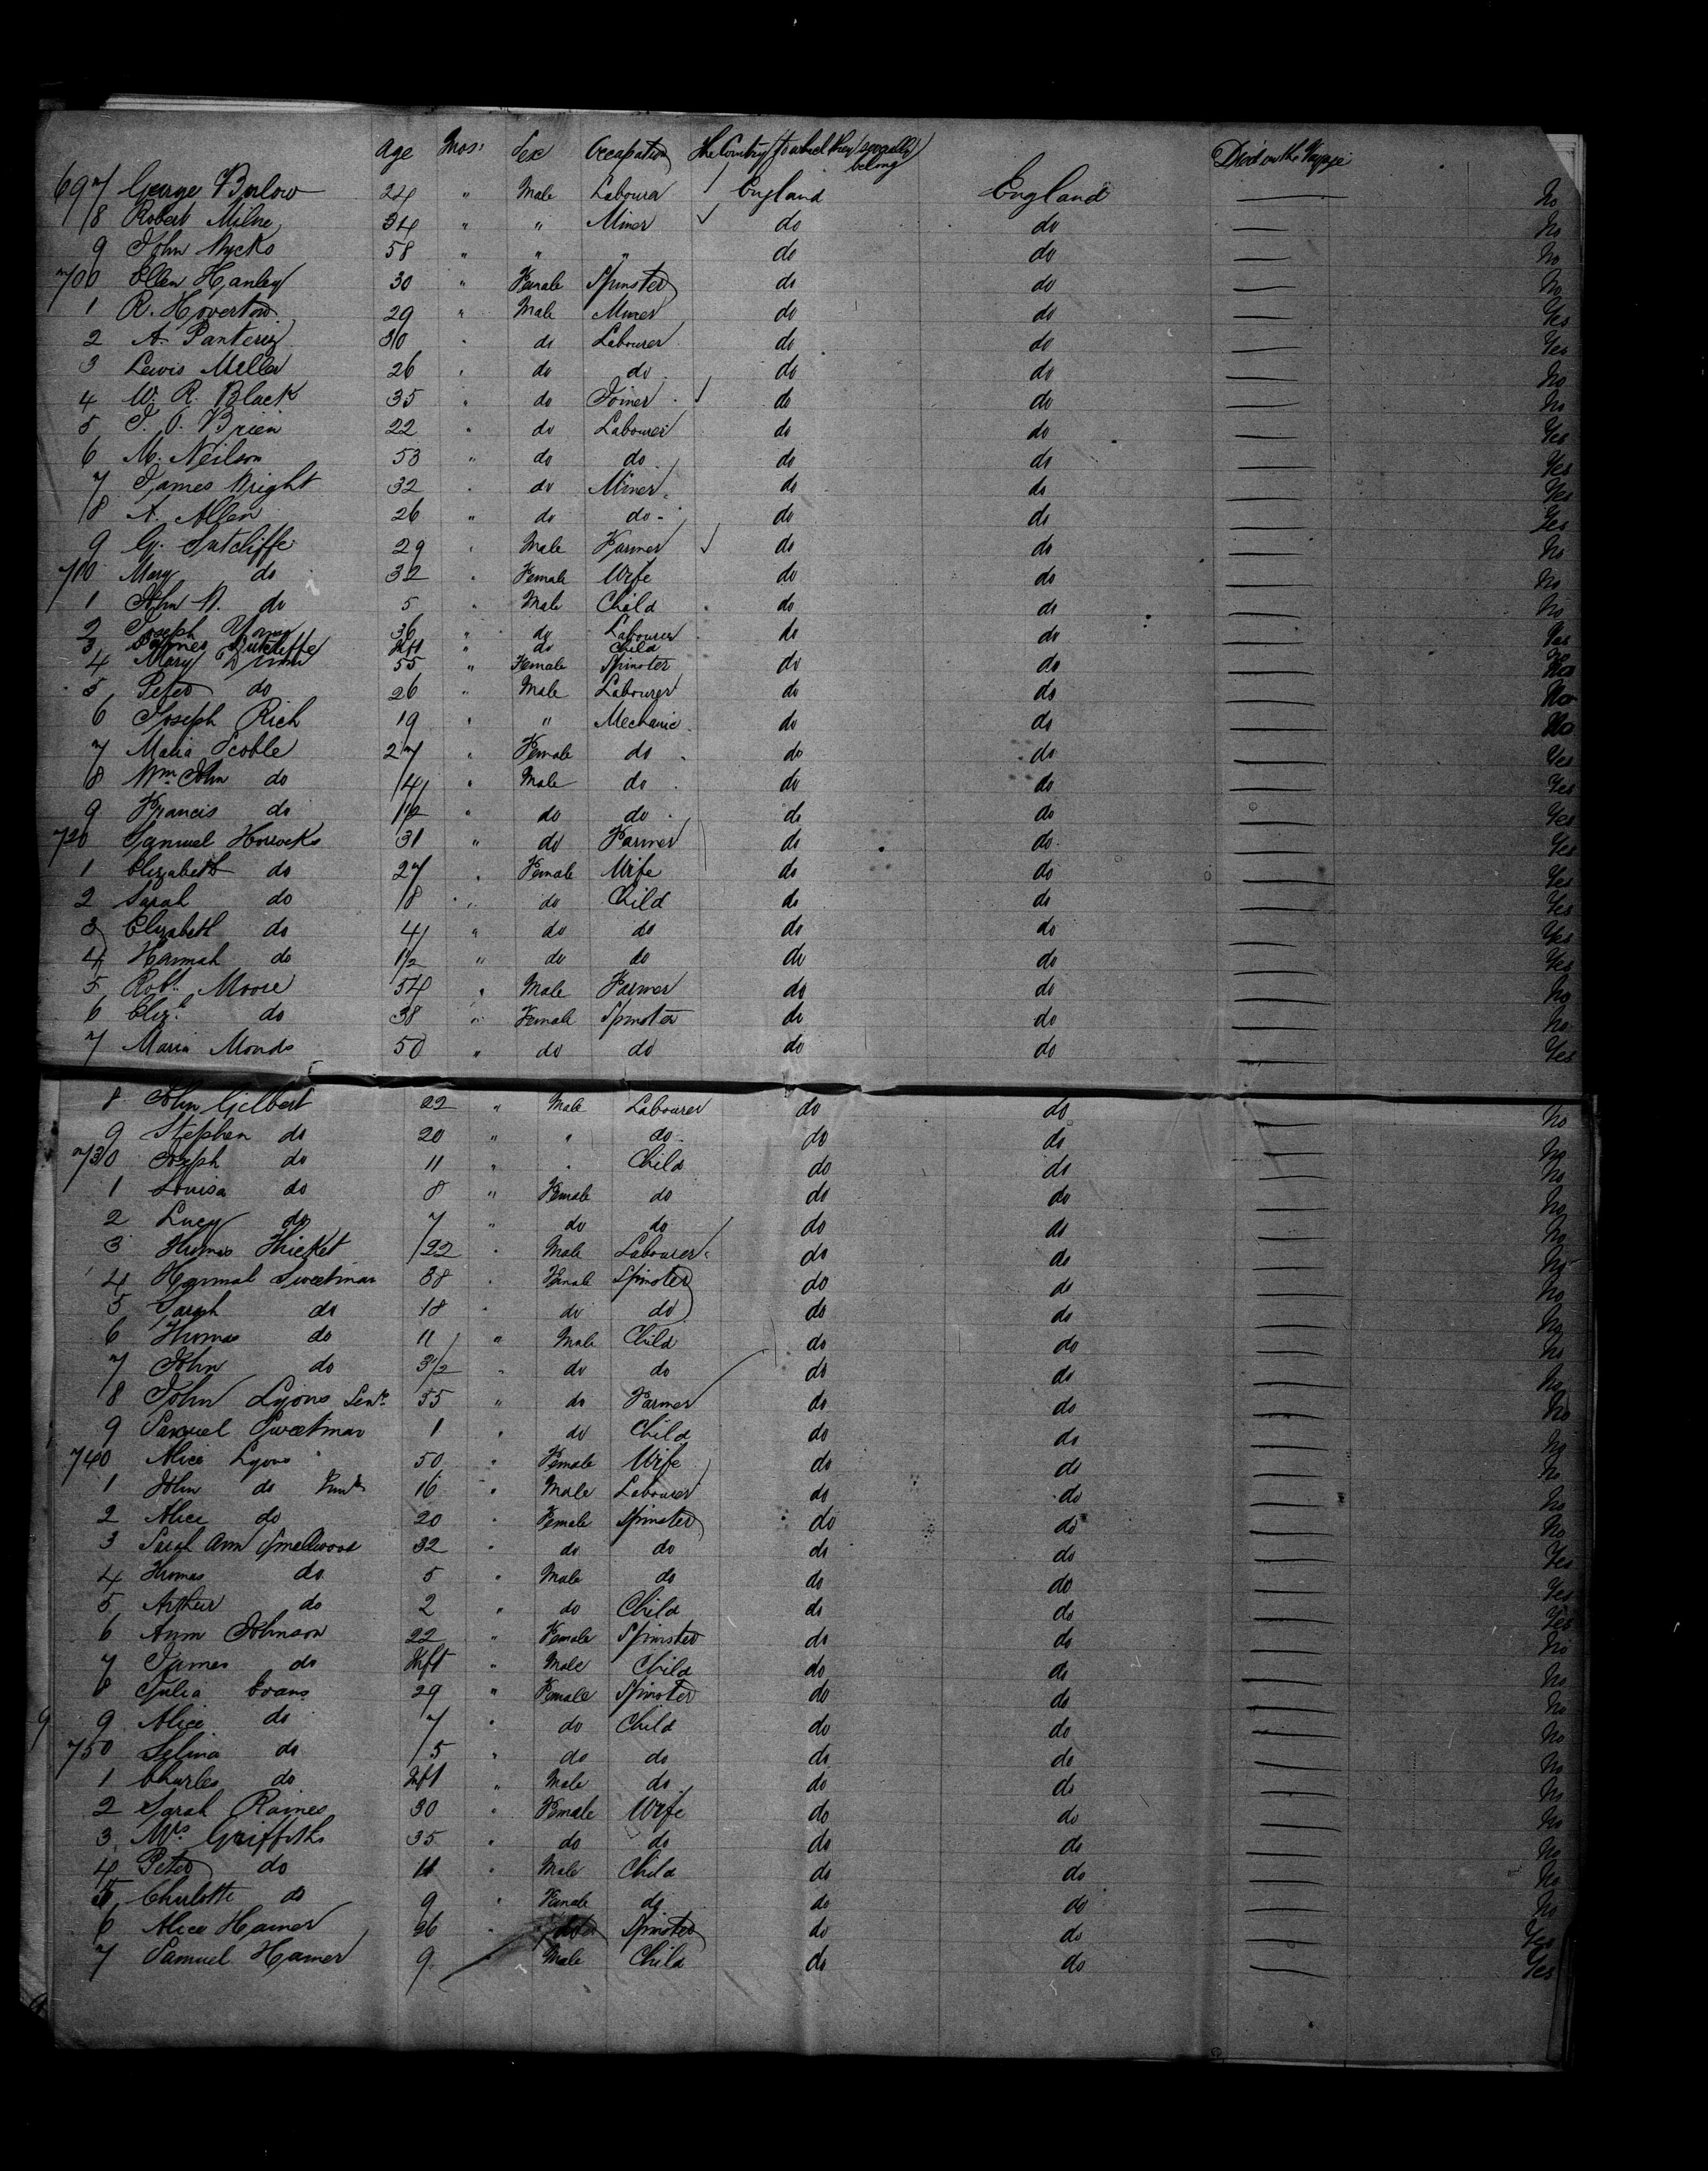 Age Mos: Sex Occupation The Country to which they severally belong Died on the Voyage
697 George Barlow 24 " Male Labourer England England — No
8 Robert Milne 34 " " Miner do do — No
9 John Wycks 58 " " " do do — No
700 Ellen Hanley 30 " Female Spinster do do — No
1 R. Hoverton 29 " Male Miner do do — Yes
2 A. 30 " do Labourer do do — Yes
3 Lewis Miller 26 " do do do do — No
4 W. R. Black 35 " do Joiner do do — No
5 T. O. Brien 22 " do Labourer do do — Yes
6 M. Neilson 53 " do do do do — Yes
7 James Wright 32 " do Miner do do — Yes
8 A. Allen 26 " do do do do — Yes
9 G. Sutcliffe 29 " Male Farmer do do — No
710 Mary do 32 " Female Wife do do — No
1 John W. do 5 " Male Child do do — No
2 Joseph Young 36 " do Labourer do do — Yes
3 James Sutcliffe Inft " do Child No
4 Mary 55 " Female Spinster do do — No
5 Peter do 26 " Male Labourer do do — No
6 Joseph Rich 19 " " Mechanic do do — No
7 Maria Scoble 27 " Female do do do — Yes
8 Wm. John do 4 " Male do do do — Yes
9 Francis do 1/2 " do do do do — Yes
720 Samuel Horrocks 31 " do Farmer do do — Yes
1 Elizabeth do 27 " Female Wife do do — Yes
2 Sarah do 8 " do Child do do — Yes
3 Elizabeth do 4 " do do do do — Yes
4 Hannah do 1/2 " do do do do — Yes
5 Robt. Moore 54 " Male Farmer do do — No
6 Elizh. do 38 " Female Spinster do do — No
7 Maria Monds 50 " do do do do — Yes
8 John Gilbert 22 " Male Labourer do do — No
9 Stephen do 20 " " do do do — No
730 Joseph do 11 " " Child do do — No
1 Louisa do 8 " Female do do do — No
2 Lucy do 7 " do do do do — No
3 Thomas Thicket 22 " Male Labourer do do — No
4 Hannah Sweetman 38 " Female Spinster do do — No
5 Sarah do 18 " do do do do — No
6 Thomas do 11 " Male Child do do — No
7 John do 3 1/2 " do do do do — No
8 John Lyons Senr. 55 " do Farmer do do — No
9 Samuel Sweetman 1 " do Child do do — No
740 Alice Lyons 50 " Female Wife do do — No
1 John do Junr. 16 " Male Labourer do do — No
2 Alice do 20 " Female Spinster do do — No
3 Sarah Ann Smallwood 32 " do do do do — Yes
4 Thomas do 5 " Male do do do — Yes
5 Arthur do 2 " do Child do do — Yes
6 Ann Johnson 22 " Female Spinster do do — No
7 James do Inft " Male Child do do — No
8 Julia Evans 29 " Female Spinster do do — No
9 9 Alice do 7 " do Child do do — No
750 Selina do 5 " do do do do — No
1 Charles do Inft " Male do do do — No
2 Sarah Raines 30 " Female Wife do do — No
3 Mrs. Griffiths 35 " do do do do — No
4 Peter do 11 " Male Child do do — No
5 Charlotte do 9 " Female do do do — No
6 Alice Hamer 26 " do Spinster do do — Yes
7 Samuel Hamer 9 " Male Child do do — Yes